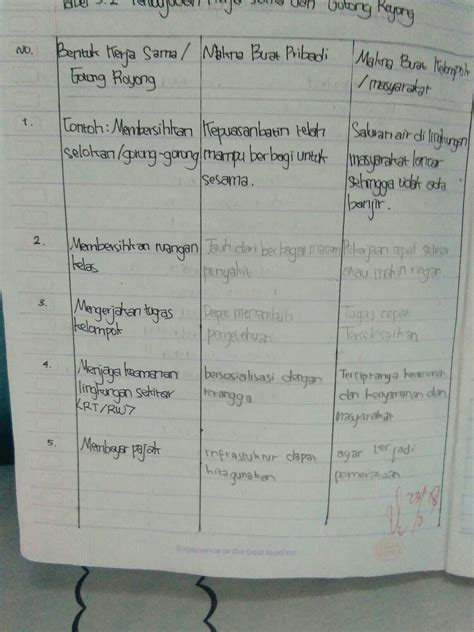 Tabel 5.2 Perwujudan Kerja Sama dan Gotong Royong
No.
Bentuk Kerja Sama /
Gotong Royong
Makna Buat Pribadi
Makna Buat Kelompok
/masyarakat
1.
Contoh: Membersihkan
selokan/gorong-gorong
Kepuasan batin telah
mampu berbagi untuk
sesama.
Saluran air di lingkungan
masyarakat lancar
sehingga tidak ada
banjir.
2.
Membersihkan ruangan
kelas
Jauh dari berbagai macam
penyakit
Pekerjaan cepat selesai
atau makin ringan
3.
Mengerjakan tugas
kelompok
Dapat menambah
pengetahuan
Tugas cepat
Terselesaikan
4.
Menjaga keamanan
lingkungan sekitar
(RT/RW)
bersosialisasi dengan
tetangga
Terciptanya keamanan
dan kenyamanan dan
masyarakat
5.
Membayar pajak
infrastruktur dapat
kita gunakan
agar terjadi
pemerataan
Experience is the best teacher